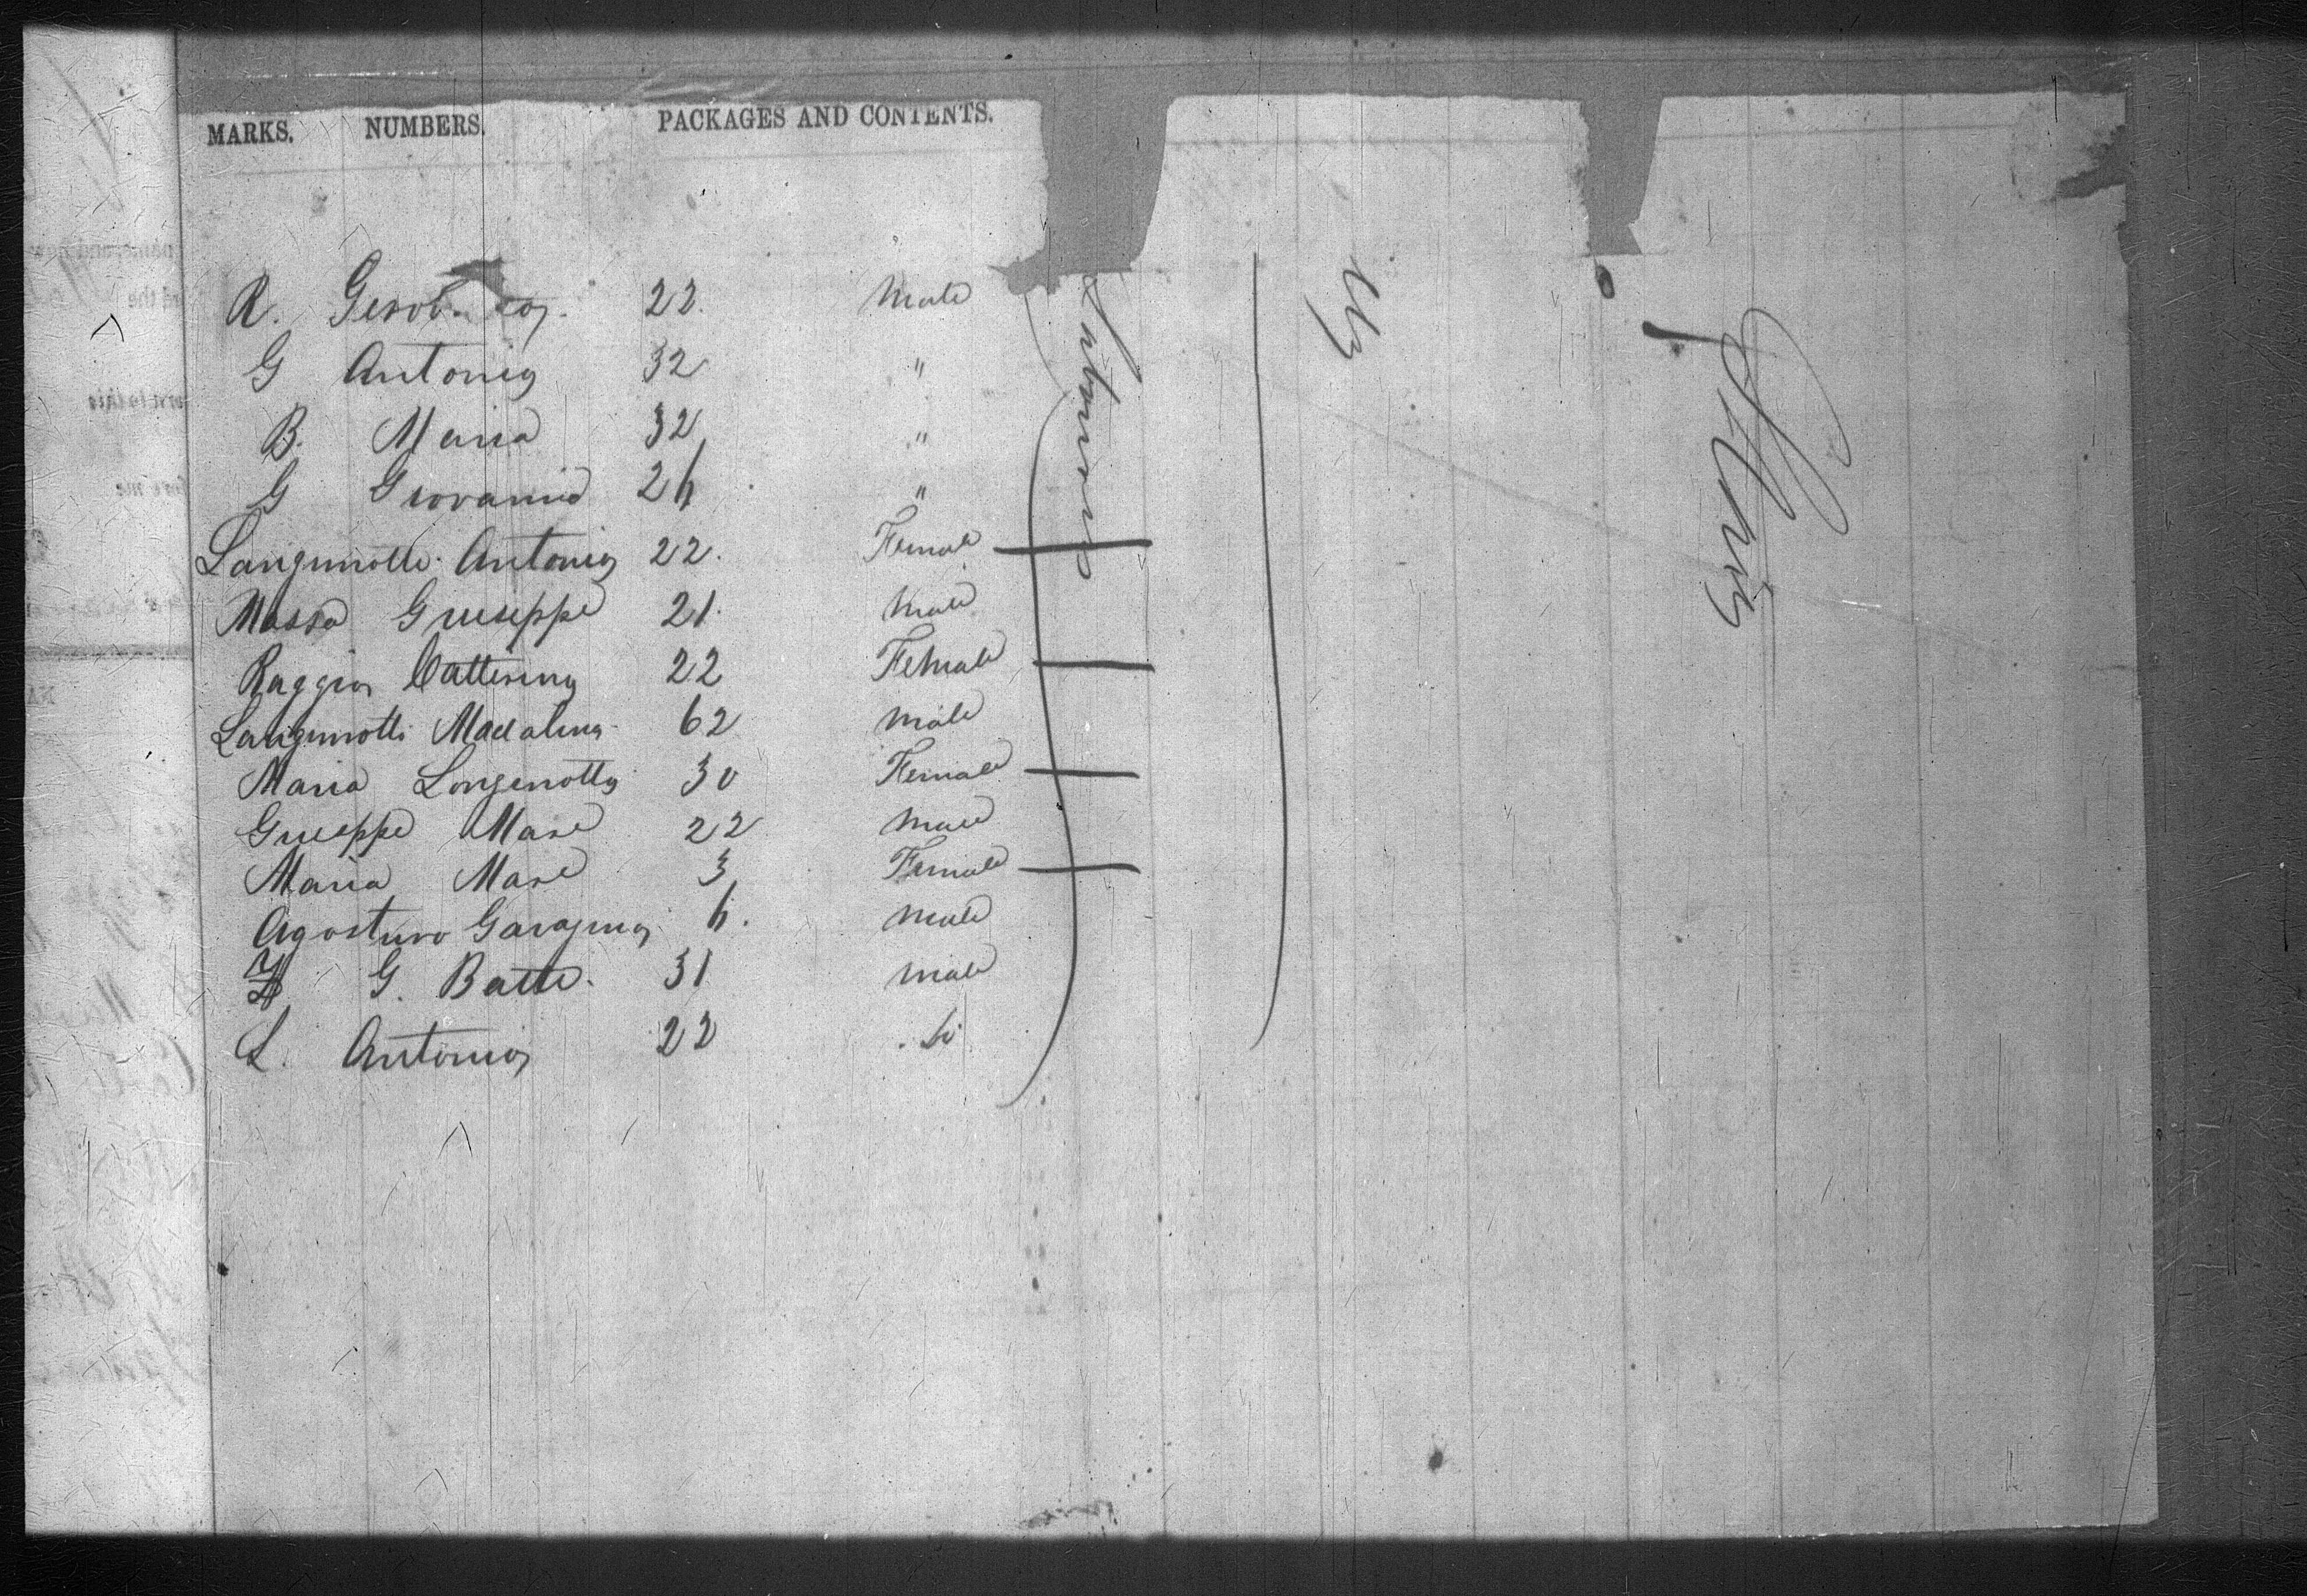 MARKS. NUMBERS. PACKAGES AND CONTENTS.
R. 22. Male
G Antonio 32 "
B. Maria 32 "
G Giovanni 24 "
Antonio 22. Female
Massa Giuseppe 21. Male
Raggio Catterina 22 Female
Madalina 62 Male
Maria Longinotto 30 Female
Giuseppe Mase 22 Male
Maria Mase 3 Female
Agostino Garagino 4. Male
G. Batte. 31 Male
L. Antonio 22
Labourers